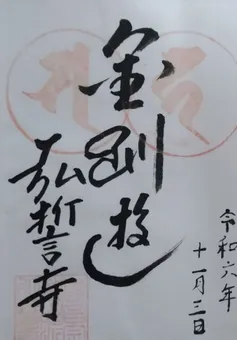 令和六年
十一月三日
金剛
弘誓寺